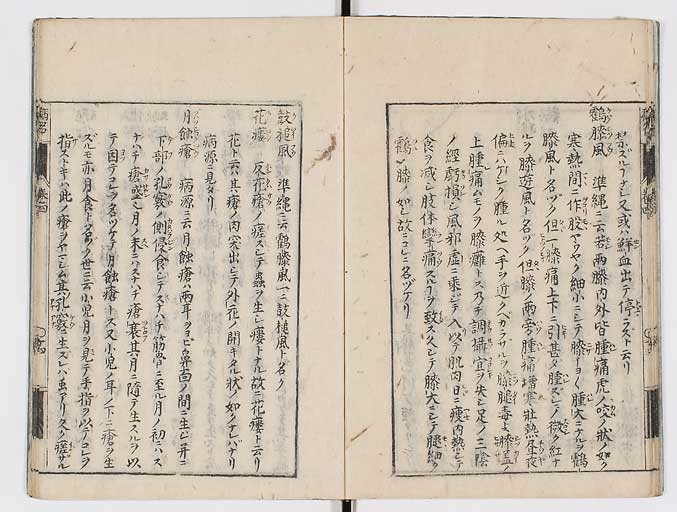 禁ズルナレ又或ハ鮮血出テ停ラズト云リ
鶴膝風 準縄ニ云若両膝内外皆腫痛虎ノ咬ノ状ノ如ク
寒熱間ニ作股ヤウヤク細小ニシテ膝イヨ〱腫大ニナルヲ鶴
膝風ト名ツク但一膝痛上下ニ引甚タ腫ズシテ微ク紅ナ
ルヲ膝遊風ト名ツク但膝ノ両旁腫痛増寒壮熱昼夜
偏ニハゲシク腫ル処ヘ手ヲ近ツクベカラザルヲ膝眼毒ト膝蓋
上腫痛ムモノヲ膝癰トス乃チ調攝宜ヲ失シ足ノ三陰
ノ經虧損シ風邪虚ニ乗シテ入以テ肌肉日ニ痩内熱シテ
食ヲ減シ肢体攣痛スルコヲ致ス久シテ膝大ニシテ腿細ク
鶴ノ膝ノ如シ故ニコレニ名ヅケリ
鼓槌風 準縄ニ云鶴膝風一ニ鼓槌風ト名ク
花瘻 反花瘡ノ瘥ズシテ蟲ヲ生シ瘻トナル故ニ花瘻ト云リ
花ト云ハ其瘡ノ肉突出シテ外花ノ開キタル状ノ如クナレバナリ
病源ニ見タリ
月蝕瘡 病源ニ云月蝕瘡ハ両耳ヲヨビ鼻面ノ間ニ生シ并ニ
下部ノ乳竅ノ側侵食シテスナハチ筋骨ニ至ル月ノ初ニハス
ナハチ瘡盛ニ月ノ末ニハスナハチ瘡衰其月ニ隨テ生スルヲ以
テ因テコレヲ名ツケテ月蝕瘡トス又小児ノ耳ノ下ニ瘡ヲ生
ズルモ亦月食ト名ツク世ニ云小児月ヲ見テ手指ヲ以テコレヲ
指ストキハ此ノ瘡ヲヤマシム其乳竅ニ生スレハ虫アリ久ク瘥ザル